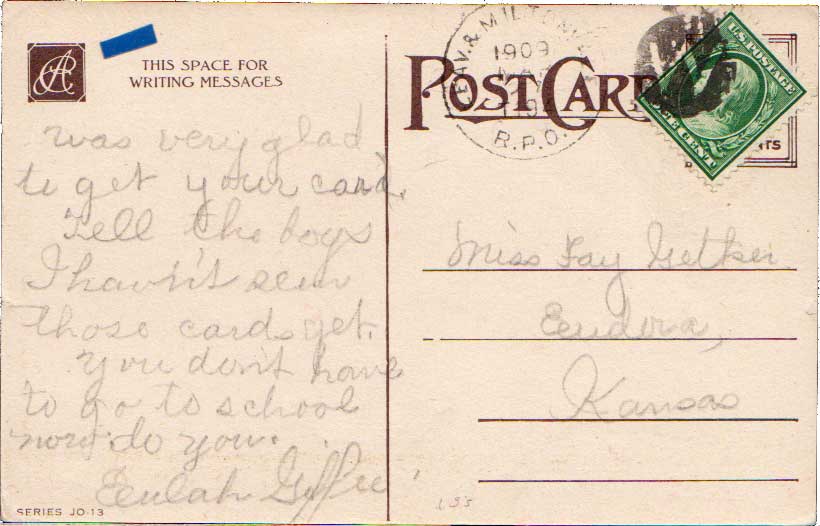 THIS SPACE FOR
WRITING MESSAGES
was very glad
to get your card.
Tell the boys
I havn't seen
those cards yet.
You don't have
to go to school
now do you.
Eulah
SERIES JO-13
POST CARD
& MILTONV
1909
R.P.O.
U.S. POSTAGE
ONE CENT
Miss Fay Getker
Eudora,
Kansas